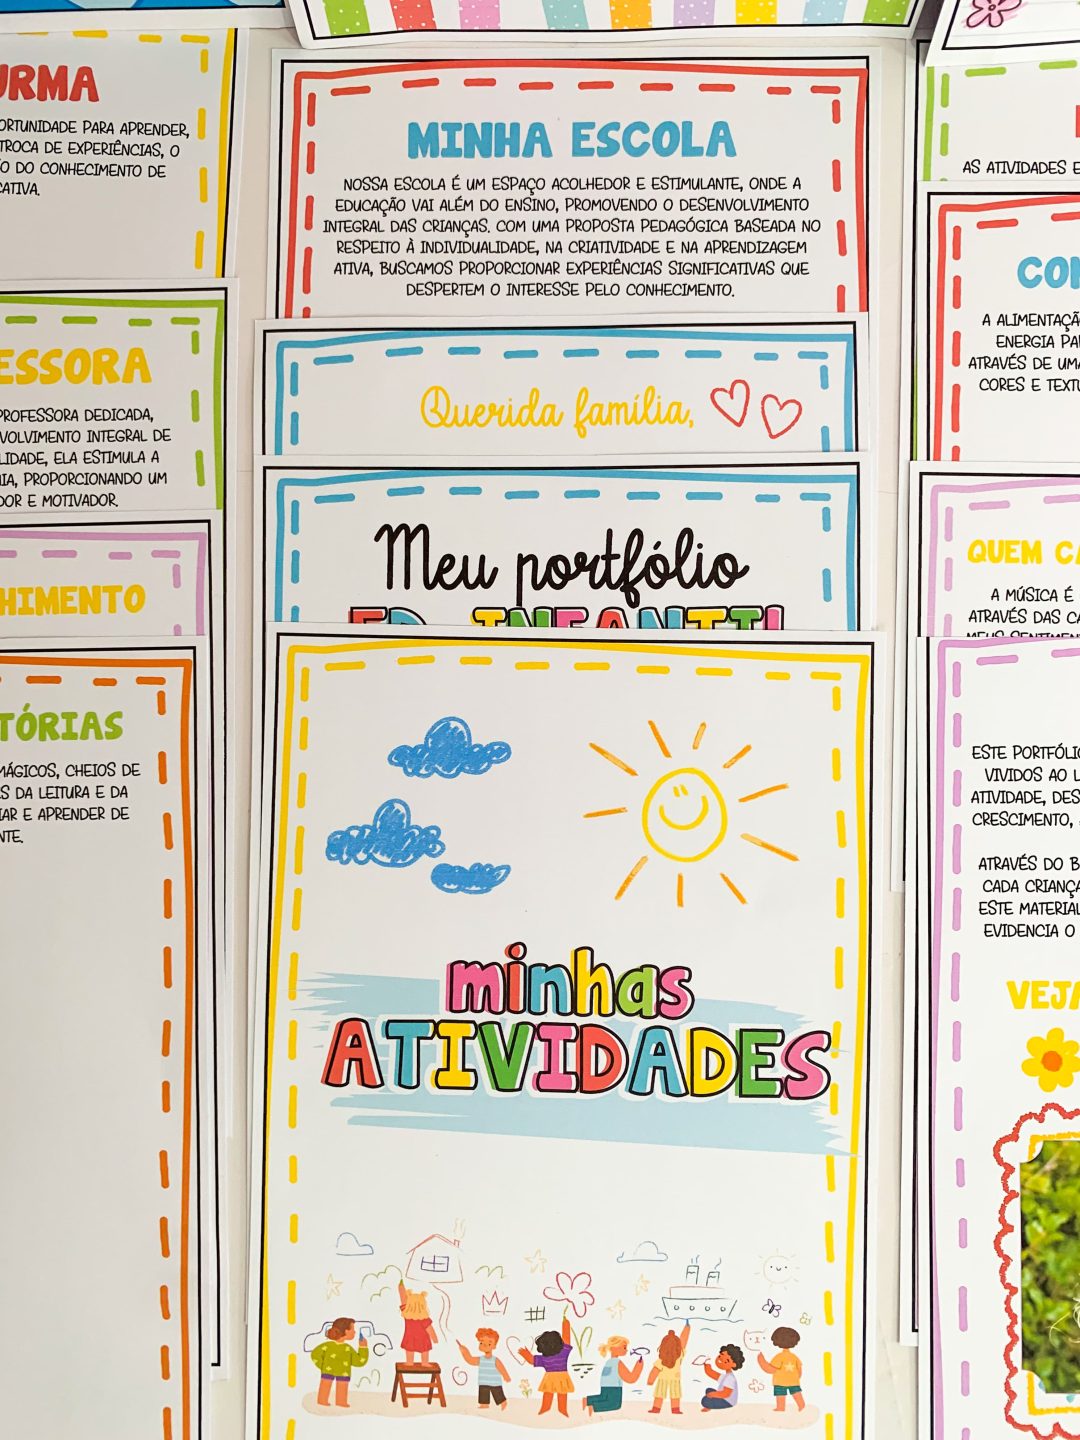 MINHA ESCOLA
NOSSA ESCOLA É UM ESPAÇO ACOLHEDOR E ESTIMULANTE, ONDE A
EDUCAÇÃO VAI ALÉM DO ENSINO, PROMOVENDO O DESENVOLVIMENTO
INTEGRAL DAS CRIANÇAS. COM UMA PROPOSTA PEDAGÓGICA BASEADA NO
RESPEITO À INDIVIDUALIDADE, NA CRIATIVIDADE E NA APRENDIZAGEM
ATIVA, BUSCAMOS PROPORCIONAR EXPERIÊNCIAS SIGNIFICATIVAS QUE
DESPERTEM O INTERESSE PELO CONHECIMENTO.
Querida família,
Meu portfólio
ED. INFANTIL
minhas
ATIVIDADES
URMA
ORTUNIDADE PARA APRENDER,
TROCA DE EXPERIÊNCIAS, O
O DO CONHECIMENTO DE
CATIVA.
ESSORA
PROFESSORA DEDICADA,
NVOLVIMENTO INTEGRAL DE
LIDADE, ELA ESTIMULA A
IA, PROPORCIONANDO UM
DOR E MOTIVADOR.
HIMENTO
TÓRIAS
MÁGICOS, CHEIOS DE
S DA LEITURA E DA
IAR E APRENDER DE
NTE.
AS ATIVIDADES E
CON
A ALIMENTAÇÃ
ENERGIA PA
ATRAVÉS DE UMA
CORES E TEXTU
QUEM CA
A MÚSICA É
ATRAVÉS DAS CA
MEUS SENTIMENT
ESTE PORTFÓLIO
VIVIDOS AO L
ATIVIDADE, DES
CRESCIMENTO,
ATRAVÉS DO B
CADA CRIANÇA
ESTE MATERIAL
EVIDENCIA O
VEJA